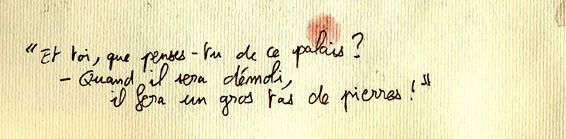 "Et toi, que penses-tu de ce palais ?
- Quand il sera démoli,
il fera un gros tas de pierres !"